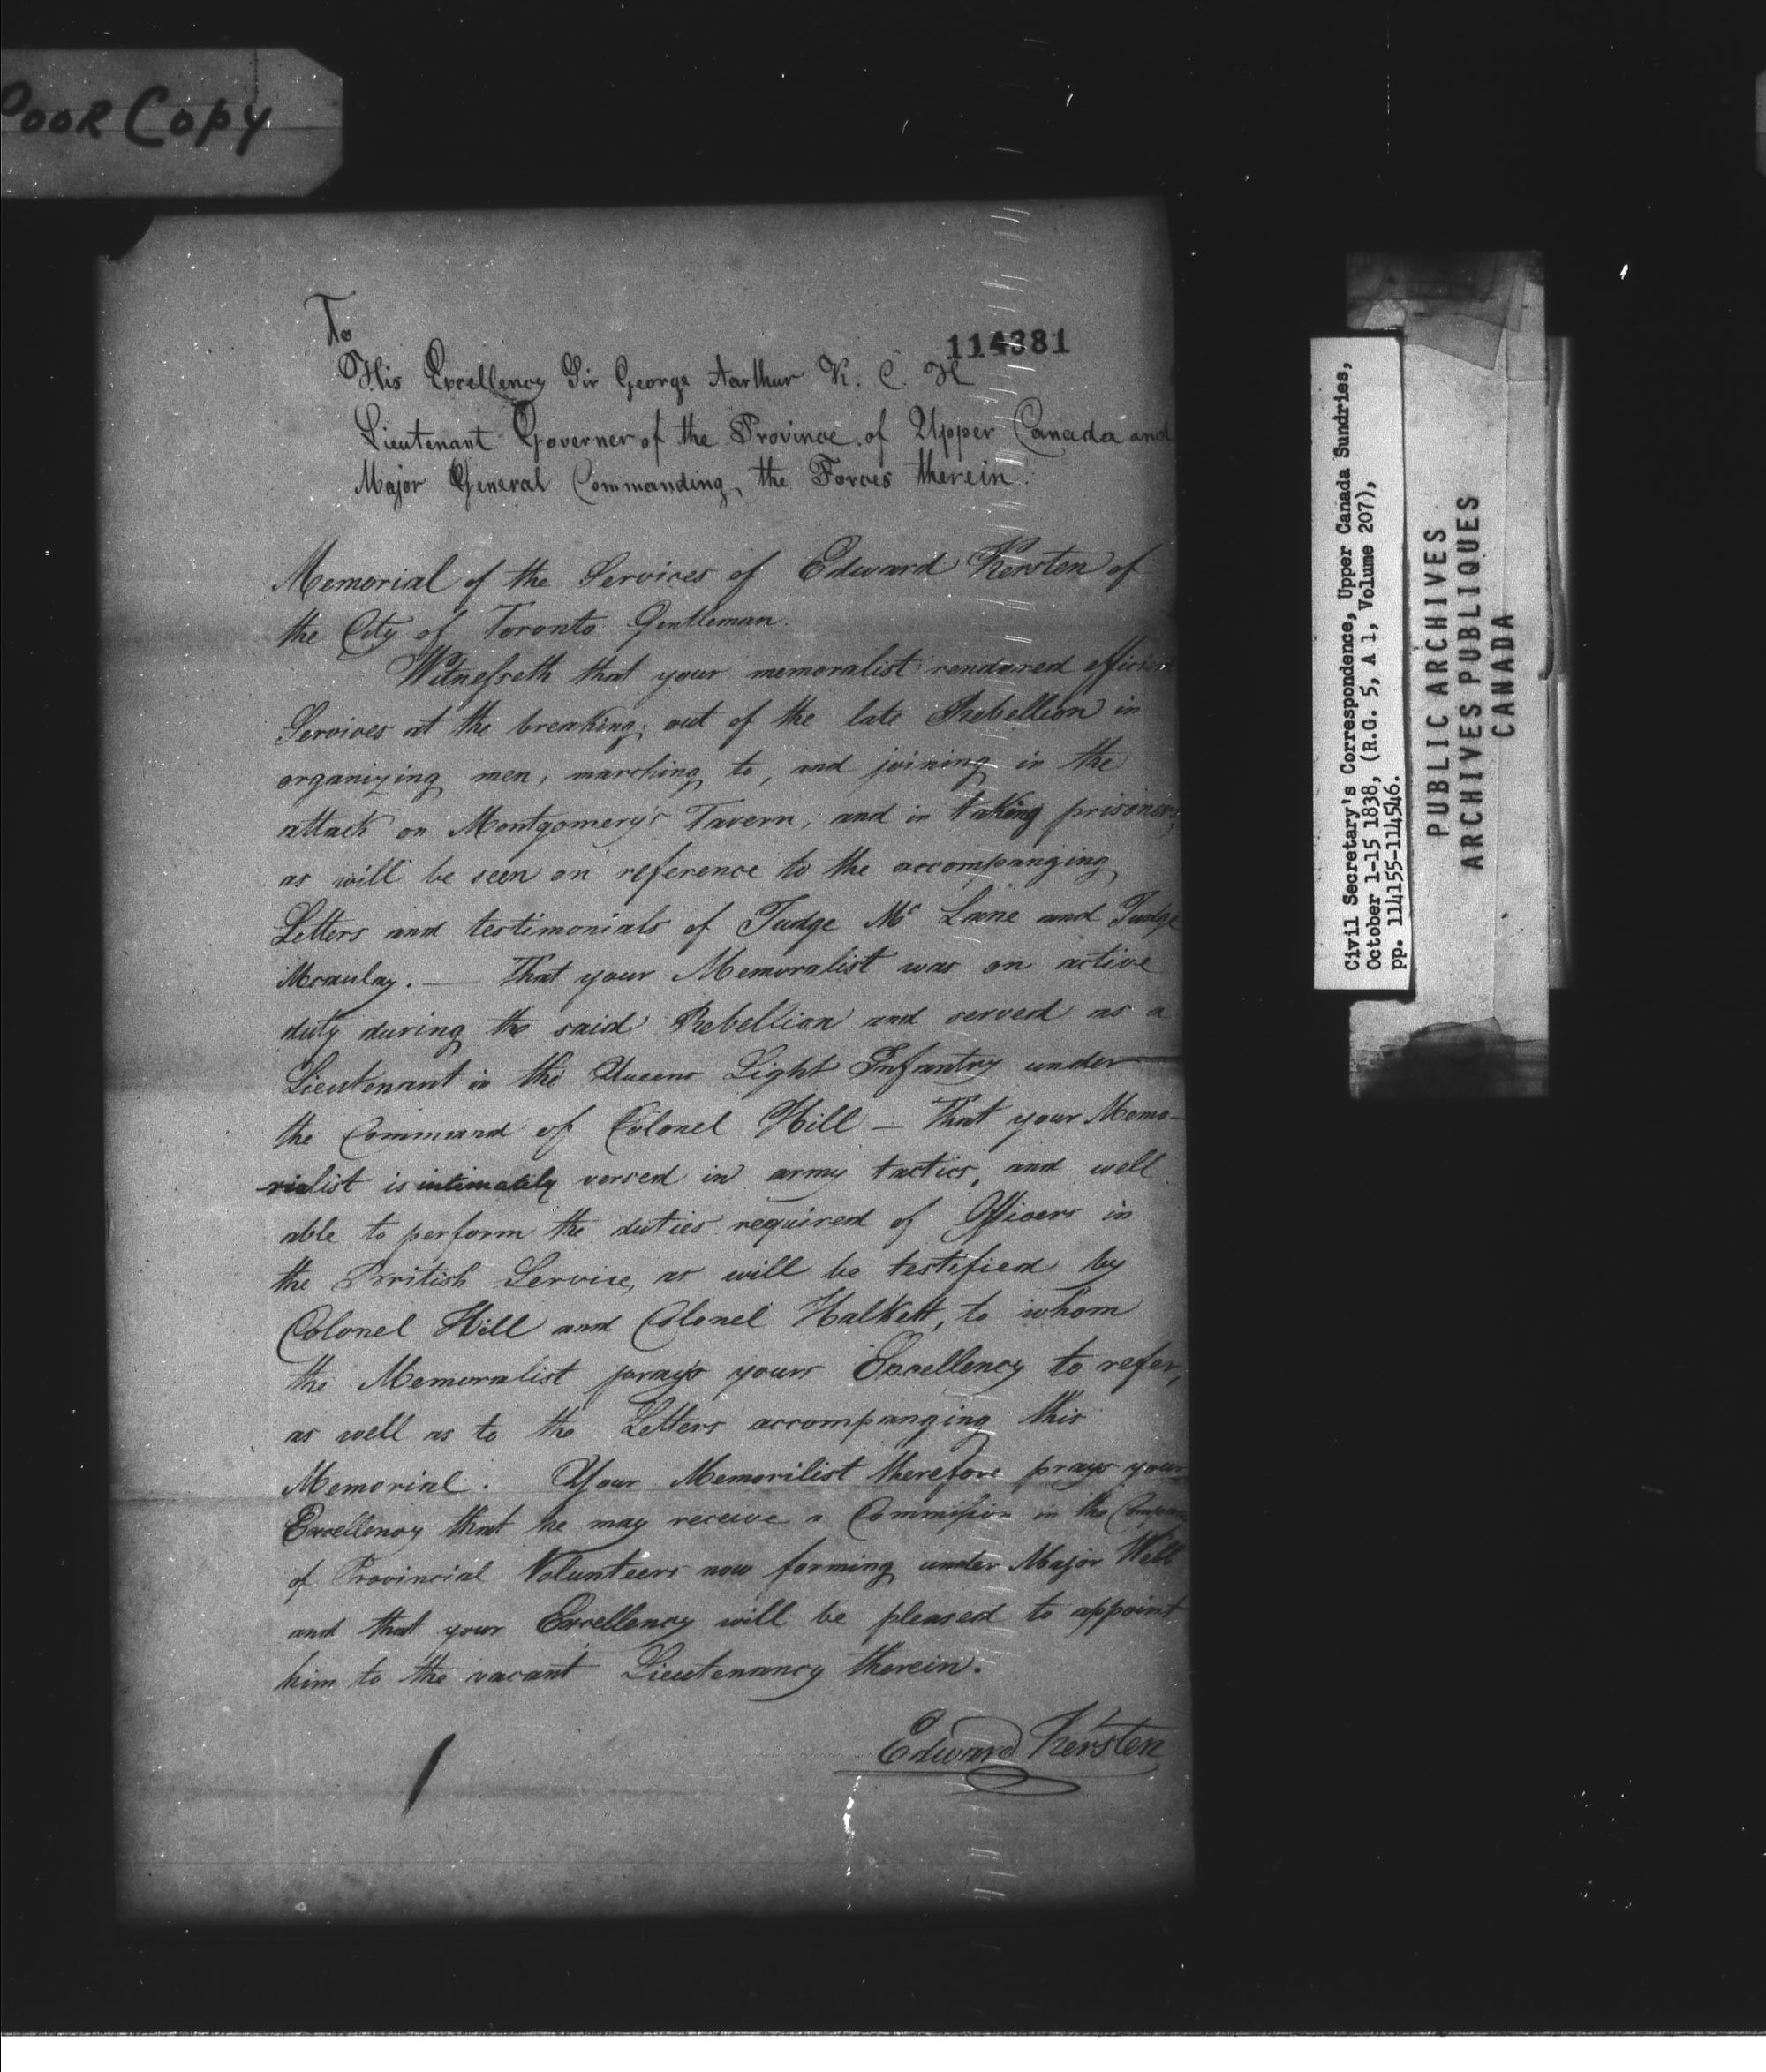 POOR COPY
To
114381
His Excellency Sir George Aarthur K. C. H
Lieutenant Governer of the Province of Upper Canada and
Major General Commanding the Forces therein.
Memorial of the Services of Edward Kersten of
the City of Toronto Gentleman.
Witnesseth that your memoralist rendered
Services at the breaking out of the late Rebellion in
organizing men, marching to, and joining in the
attack on Montgomery's Tavern, and in taking prisoners,
as will be seen on reference to the accompanging
Letters and testimonials of Judge Mc Lane and Judge
Mcaulay. — That your Memoralist was on active
duty during the said Rebellion and served as a
Lieutenant in the Queens Light Infantry under
the Command of Colonel Hill — That your Memo-
rialist is intimately versed in army tactics, and well
able to perform the duties required of Officers in
the British Service, as will be testified by
Colonel Hill and Colonel Halkett, to whom
the Memoralist prays yours Excellency to refer,
as well as to the Letters accompanging this
Memorial. Your Memorilist therefore prays your
Excellency that he may receive a Commission in the
of Provincial Volunteers now forming under Major
and that your Excellency will be pleased to appoint
him to the vacant Lieutenancy therein.
Edward Kersten
Civil Secretary's Correspondence, Upper Canada Sundries,
October 1-15 1838, (R.G. 5, A 1, Volume 207),
pp. 114155-114546.
PUBLIC ARCHIVES
ARCHIVES PUBLIQUES
CANADA